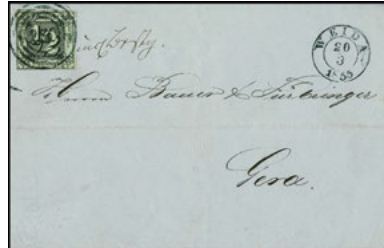 1/2
WEIDA
20
3
1855
Herrn Bauer & Fürbringer
Gera.